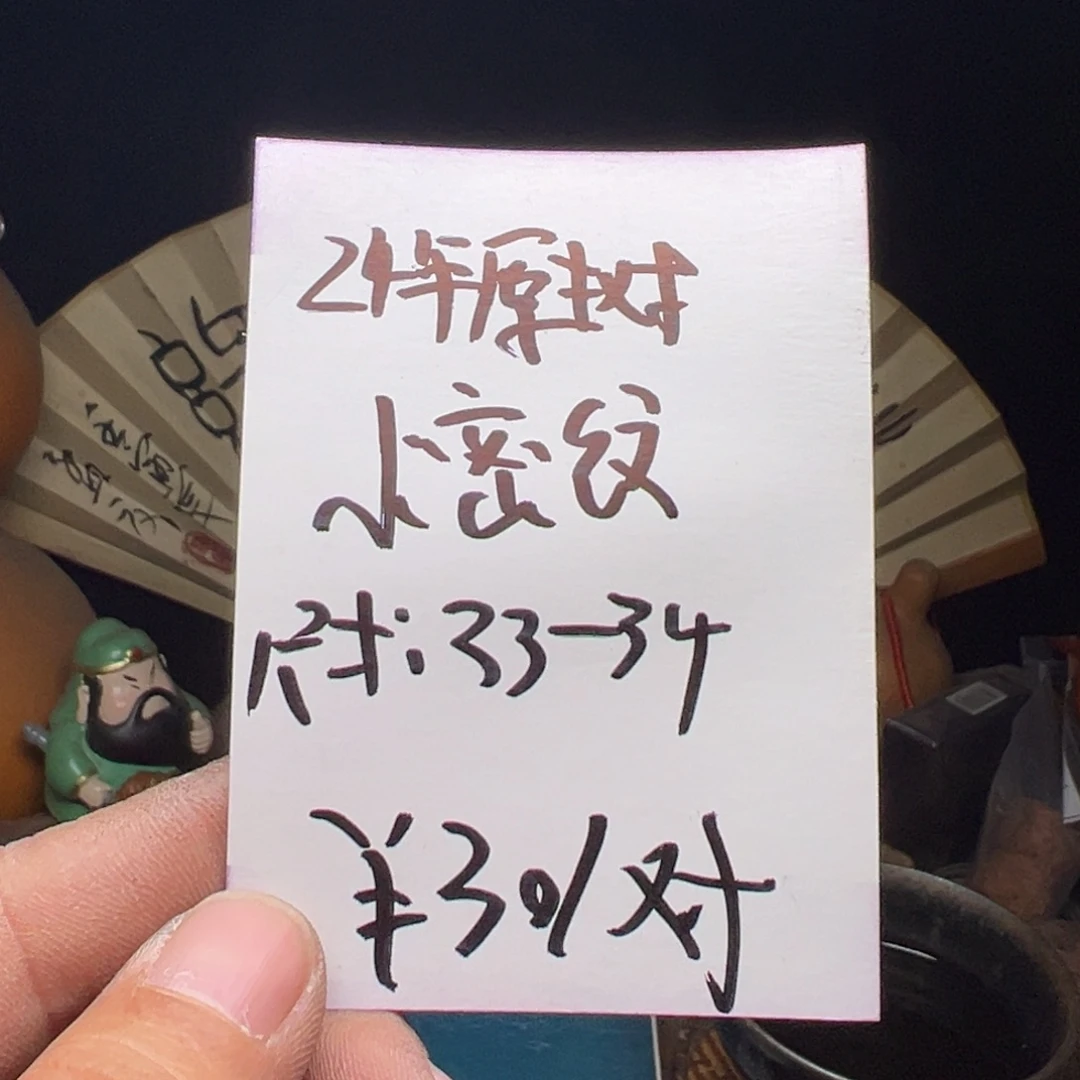 24年原树
水密纹
尺寸:33-34
¥30/对